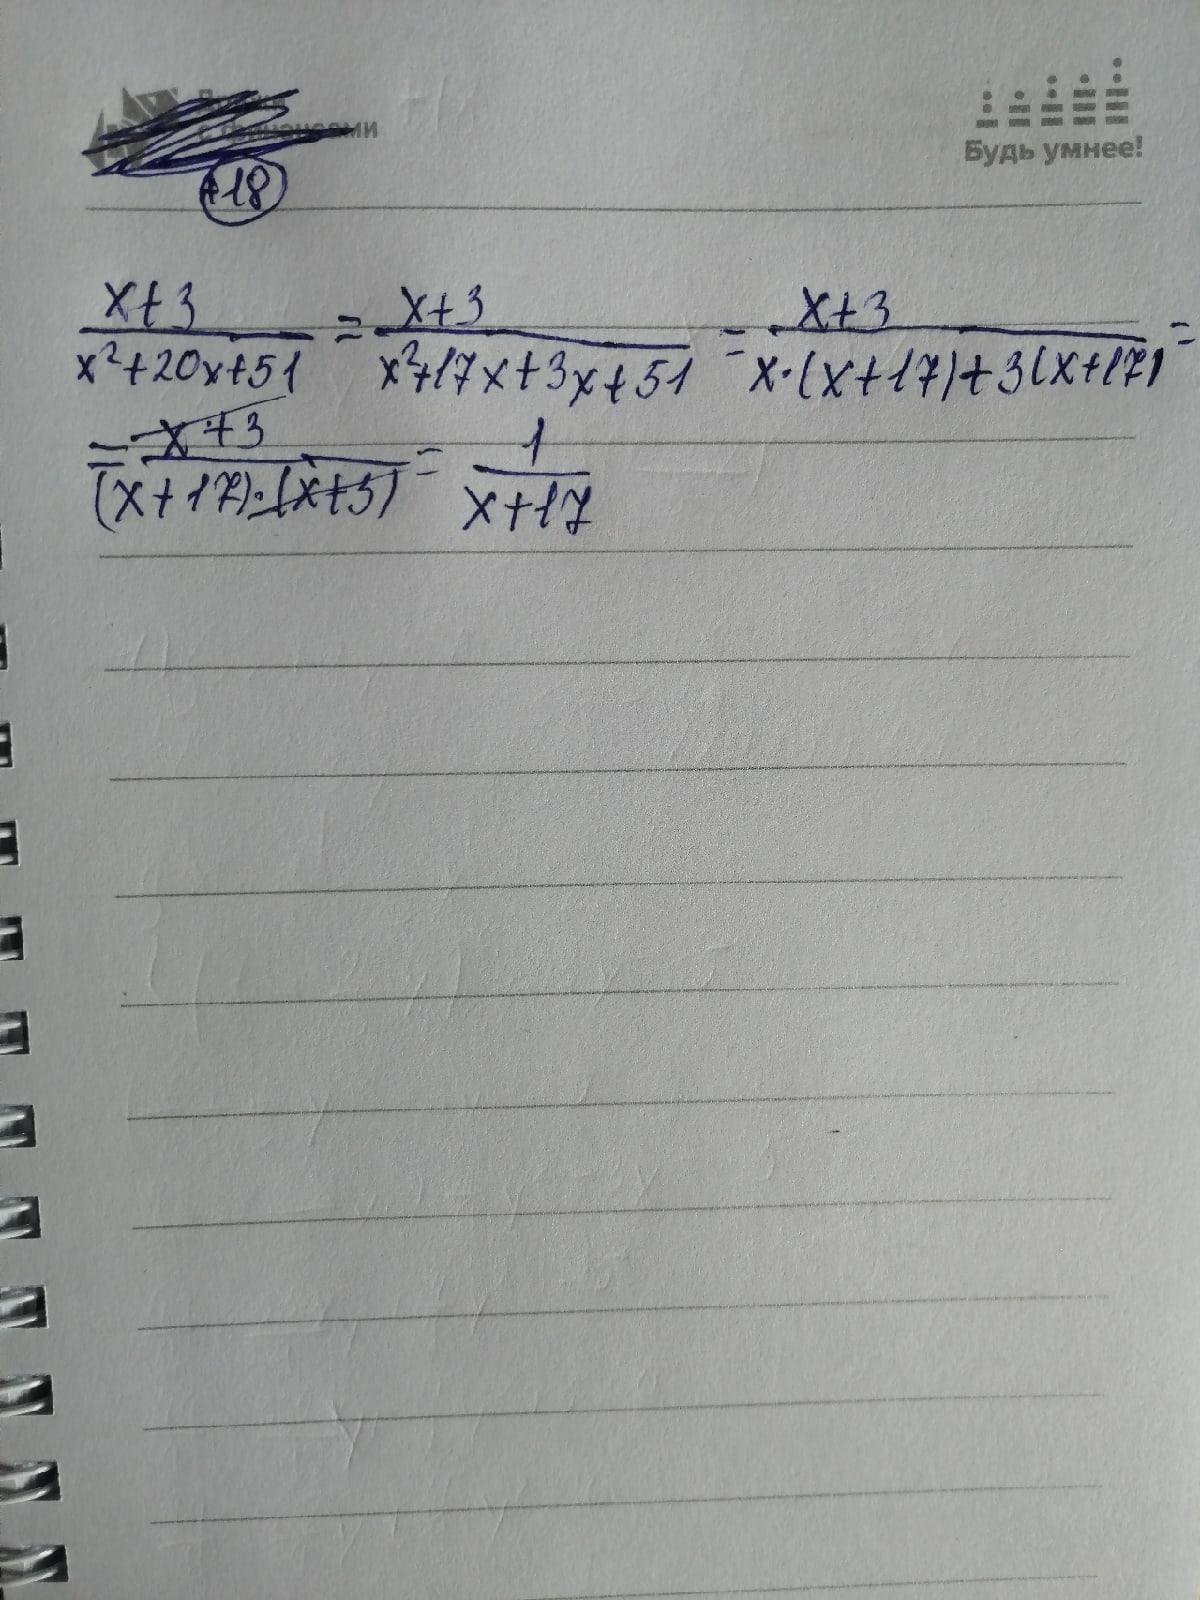 с финансами
Будь умнее!
18
x+3 / x²+20x+51 = x+3 / x²+17x+3x+51 = x+3 / x·(x+17)+3(x+17) =
= x+3 / (x+17)·(x+3) = 1 / x+17